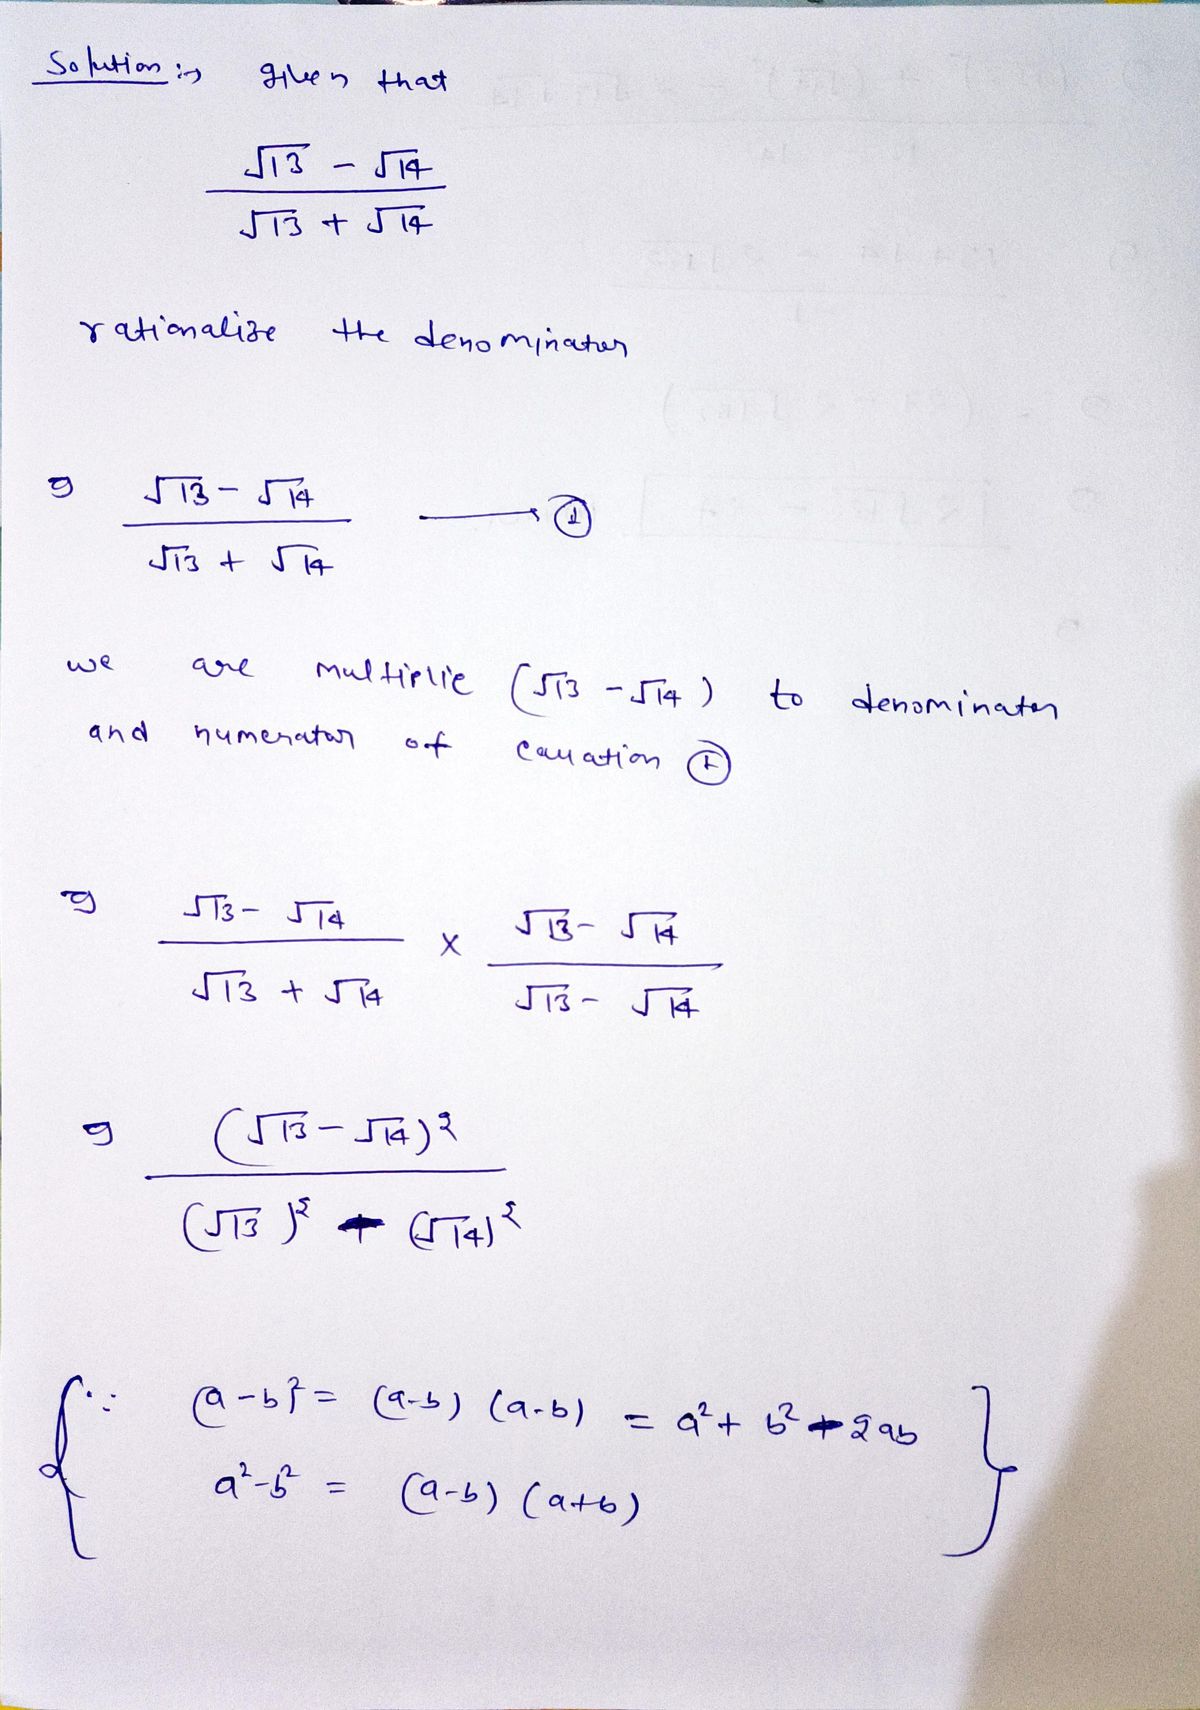 Solution :→ given that
√13 - √14
√13 + √14
rationalize the denominator
⇒ √13 - √14 ⟶ ①
√13 + √14
we are multiplie (√13 - √14) to denominator
and numerator of equation ①
⇒ √13 - √14 × √13 - √14
√13 + √14 √13 - √14
⇒ (√13 - √14)²
(√13)² - (√14)²
{∵ (a-b)² = (a-b) (a-b) = a² + b² - 2ab
a² - b² = (a-b) (a+b)}